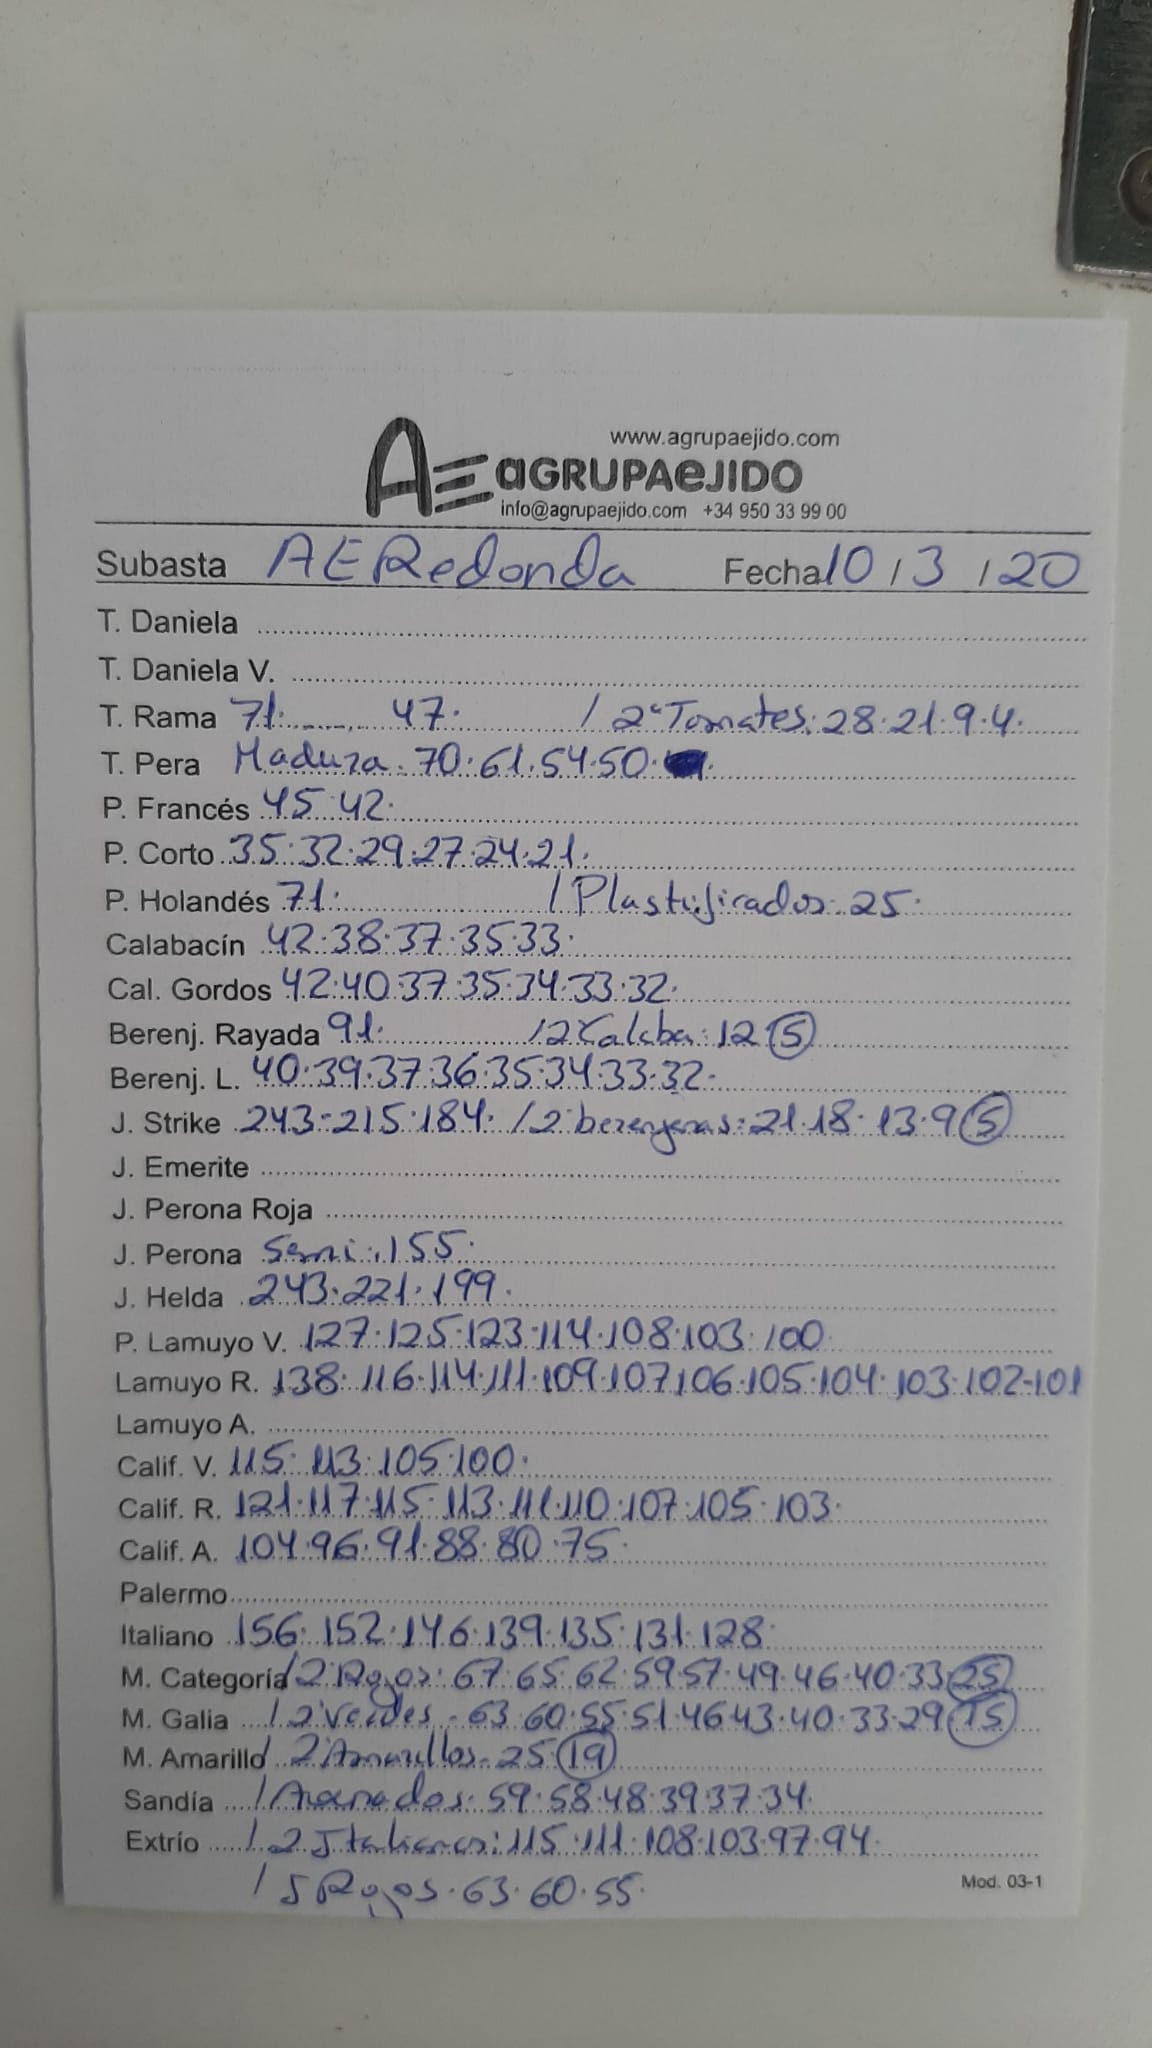 www.agrupaejido.com
AE aGRUPAeJIDO
info@agrupaejido.com +34 950 33 99 00
Subasta AERedonda Fecha 10 / 3 / 20
T. Daniela
T. Daniela V.
T. Rama 71. 47. / 2ª Tomates: 28.21.9.4.
T. Pera Madura. 70.61.54.50.
P. Francés 45.42.
P. Corto 35.32.29.27.24.21.
P. Holandés 71. / Plastificados. 25.
Calabacín 42.38.37.35.33.
Cal. Gordos 42.40.37.35.34.33.32.
Berenj. Rayada 91. / 2ª Calaba: 12 (5)
Berenj. L. 40.39.37.36.35.34.33.32.
J. Strike 243-215.184. / 2ª berenjenas: 21.18.13.9 (5)
J. Emerite
J. Perona Roja
J. Perona Semi: 155.
J. Helda 243.221.199.
P. Lamuyo V. 127.125.123.114.108.103.100.
Lamuyo R. 138.116.114.111.109.107.106.105.104.103.102-101
Lamuyo A.
Calif. V. 115.113.105.100.
Calif. R. 121.117.115.113.111.110.107.105.103.
Calif. A. 104.96.91.88.80.75.
Palermo
Italiano 156.152.146.139.135.131.128.
M. Categoría / 2ª Rojos: 67.65.62.59.57.49.46.40.33 (25)
M. Galia / 2ª Verdes - 63.60.55.51.46.43.40.33.29 (15)
M. Amarillo / 2ª Amarillos. 25 (19)
Sandía / Asurados: 59.58.48.39.37.34.
Extrío / 2ª Italianos: 115.111.108.103.97.94.
/ 5 Rojos. 63.60.55.
Mod. 03-1